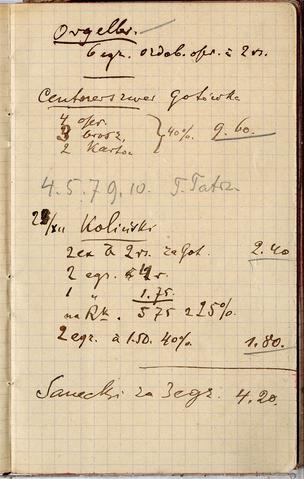 Orgelbr.
6 egz. ozdob. opr. à 2 rs.
Centnerszwer Gotówka
4 opr.
3 brosz. } 40% 9.60.
2 Karton
4. 5. 7 9. 10. T. Tatrz.
22/XII Koliński
2 ex à 2 rs. za Got. 2.40
2 egz. 4 r.
1 " 1.75.
na Rk. 5 75 z 25%.
2 egz. à 1.50. 40% 1.80.
Sanecki za 3 egz. 4.20.